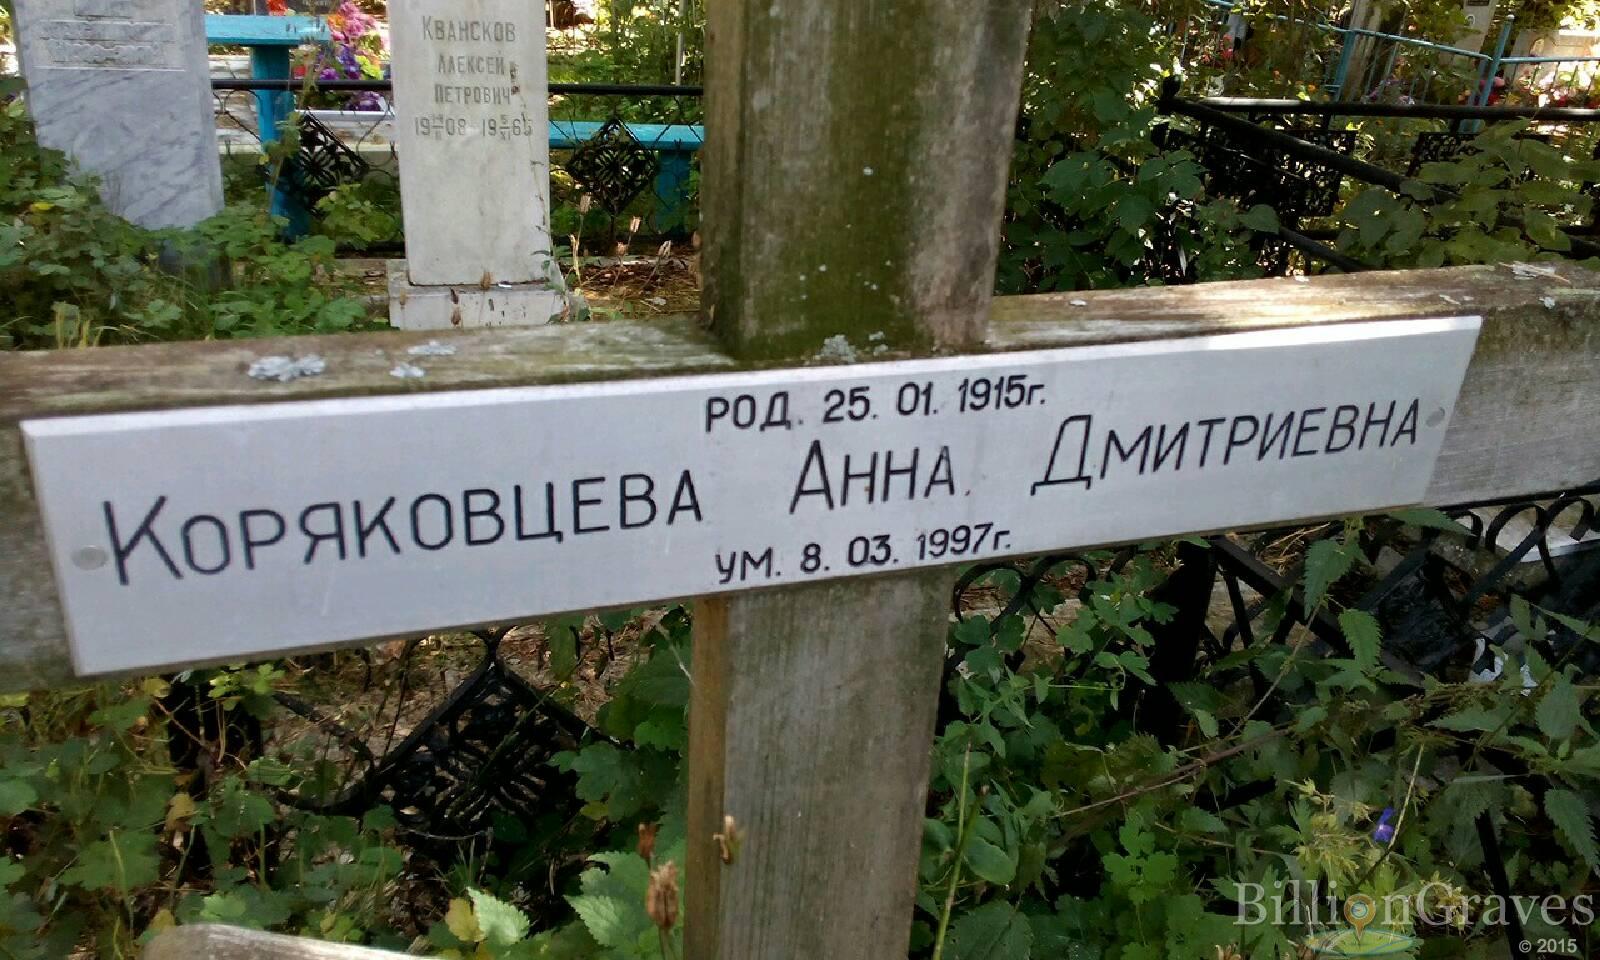 Квансков
Алексей
Петрович
род. 25. 01. 1915г.
Коряковцева Анна Дмитриевна
ум. 8. 03. 1997г.
BillionGraves
© 2015